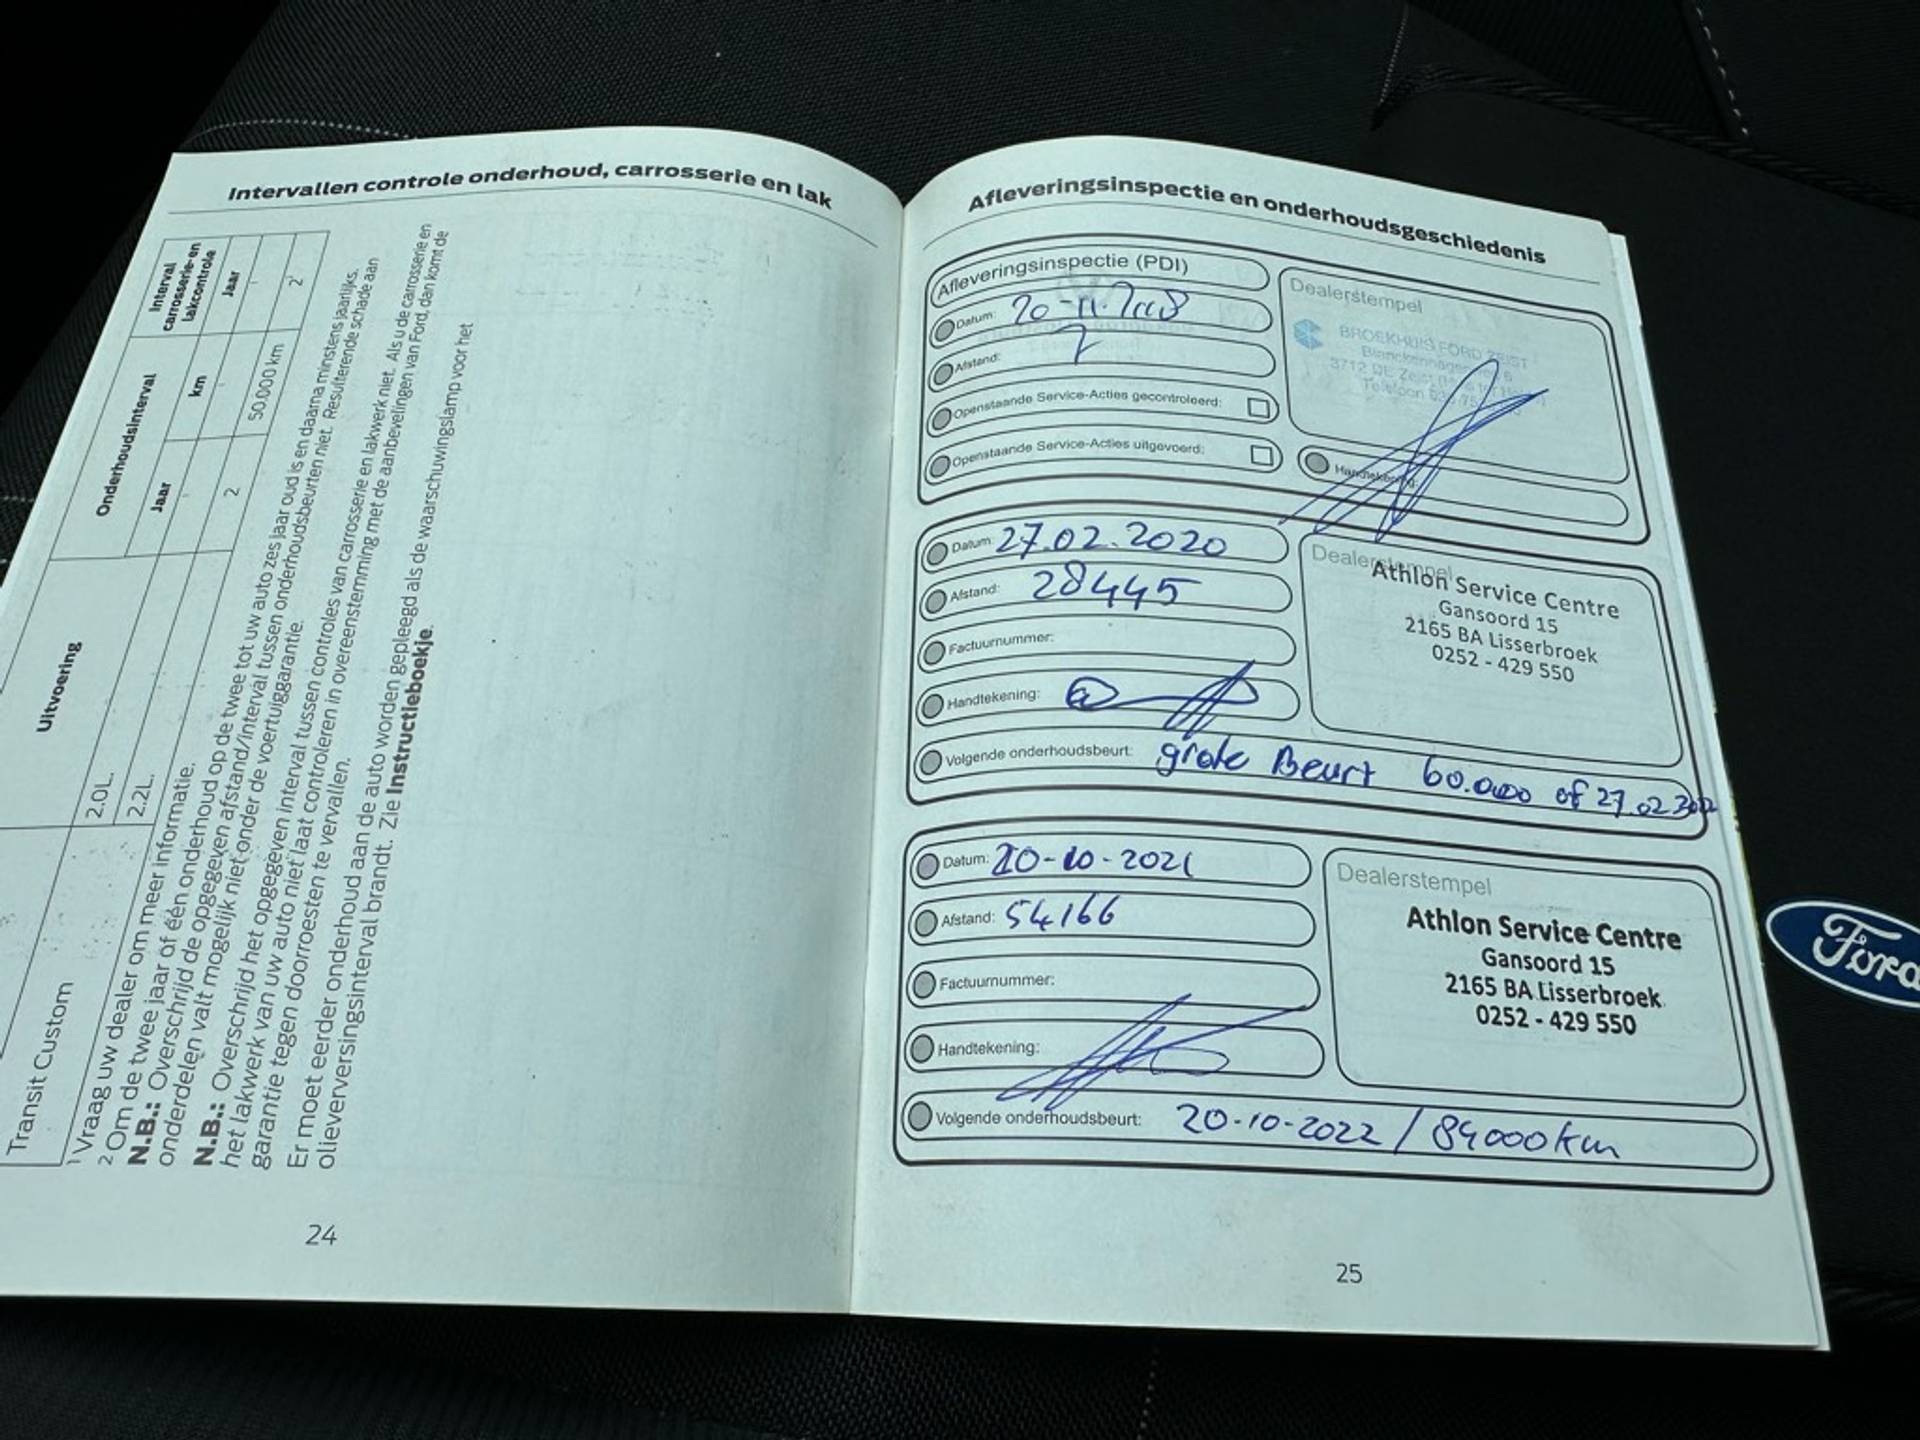 Intervallen controle onderhoud, carrosserie en lak
Uitvoering
Onderhoudsinterval
Interval
carrosserie- en
lakcontrole
Jaar
km
Jaar
Transit Custom
2.0L.
2.2L.
2
50.000 km
2
1 Vraag uw dealer om meer informatie.
2 Om de twee jaar of één onderhoud op de twee tot uw auto zes jaar oud is en daarna minstens jaarlijks.
N.B.: Overschrijd de opgegeven afstand/interval tussen onderhoudsbeurten niet. Resulterende schade aan
onderdelen valt mogelijk niet onder de voertuiggarantie.
N.B.: Overschrijd het opgegeven interval tussen controles van carrosserie en lakwerk niet. Als u de carrosserie en
het lakwerk van uw auto niet laat controleren in overeenstemming met de aanbevelingen van Ford, dan komt de
garantie tegen doorroesten te vervallen.
Er moet eerder onderhoud aan de auto worden gepleegd als de waarschuwingslamp voor het
olieverversingsinterval brandt. Zie Instructieboekje.
24
Afleveringsinspectie en onderhoudsgeschiedenis
Afleveringsinspectie (PDI)
Datum:
Afstand: 7
Openstaande Service-Acties gecontroleerd:
Openstaande Service-Acties uitgevoerd:
Dealerstempel
BROEKHUIS FORD ZEIST
3712 Zeist
Telefoon
Handtekening:
Datum: 27.02.2020
Afstand: 28445
Factuurnummer:
Handtekening:
Volgende onderhoudsbeurt: grote Beurt 60.000 of 27.02
Dealerstempel
Athlon Service Centre
Gansoord 15
2165 BA Lisserbroek
0252 - 429 550
Datum: 20-10-2021
Afstand: 54166
Factuurnummer:
Handtekening:
Volgende onderhoudsbeurt: 20-10-2022 / 84000km
Dealerstempel
Athlon Service Centre
Gansoord 15
2165 BA Lisserbroek
0252 - 429 550
25
Ford